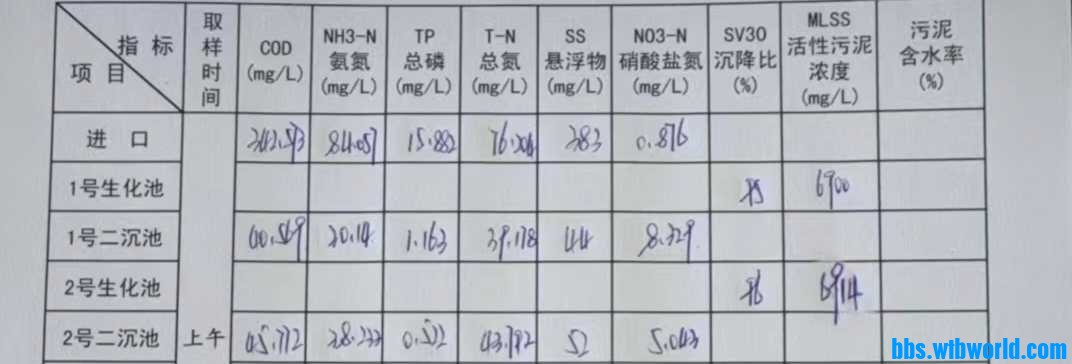 指标
项目
取样时间
COD (mg/L)
NH3-N 氨氮 (mg/L)
TP 总磷 (mg/L)
T-N 总氮 (mg/L)
SS 悬浮物 (mg/L)
NO3-N 硝酸盐氮 (mg/L)
SV30 沉降比 (%)
MLSS 活性污泥浓度 (mg/L)
污泥含水率 (%)
进口 15.882 383 0.876
1号生化池 6900
1号二沉池 20.14 1.163 39.178 44 8.329
2号生化池 6914
2号二沉池 上午 45.772 0.522 43.792 52 5.043
bbs.wtbworld.com